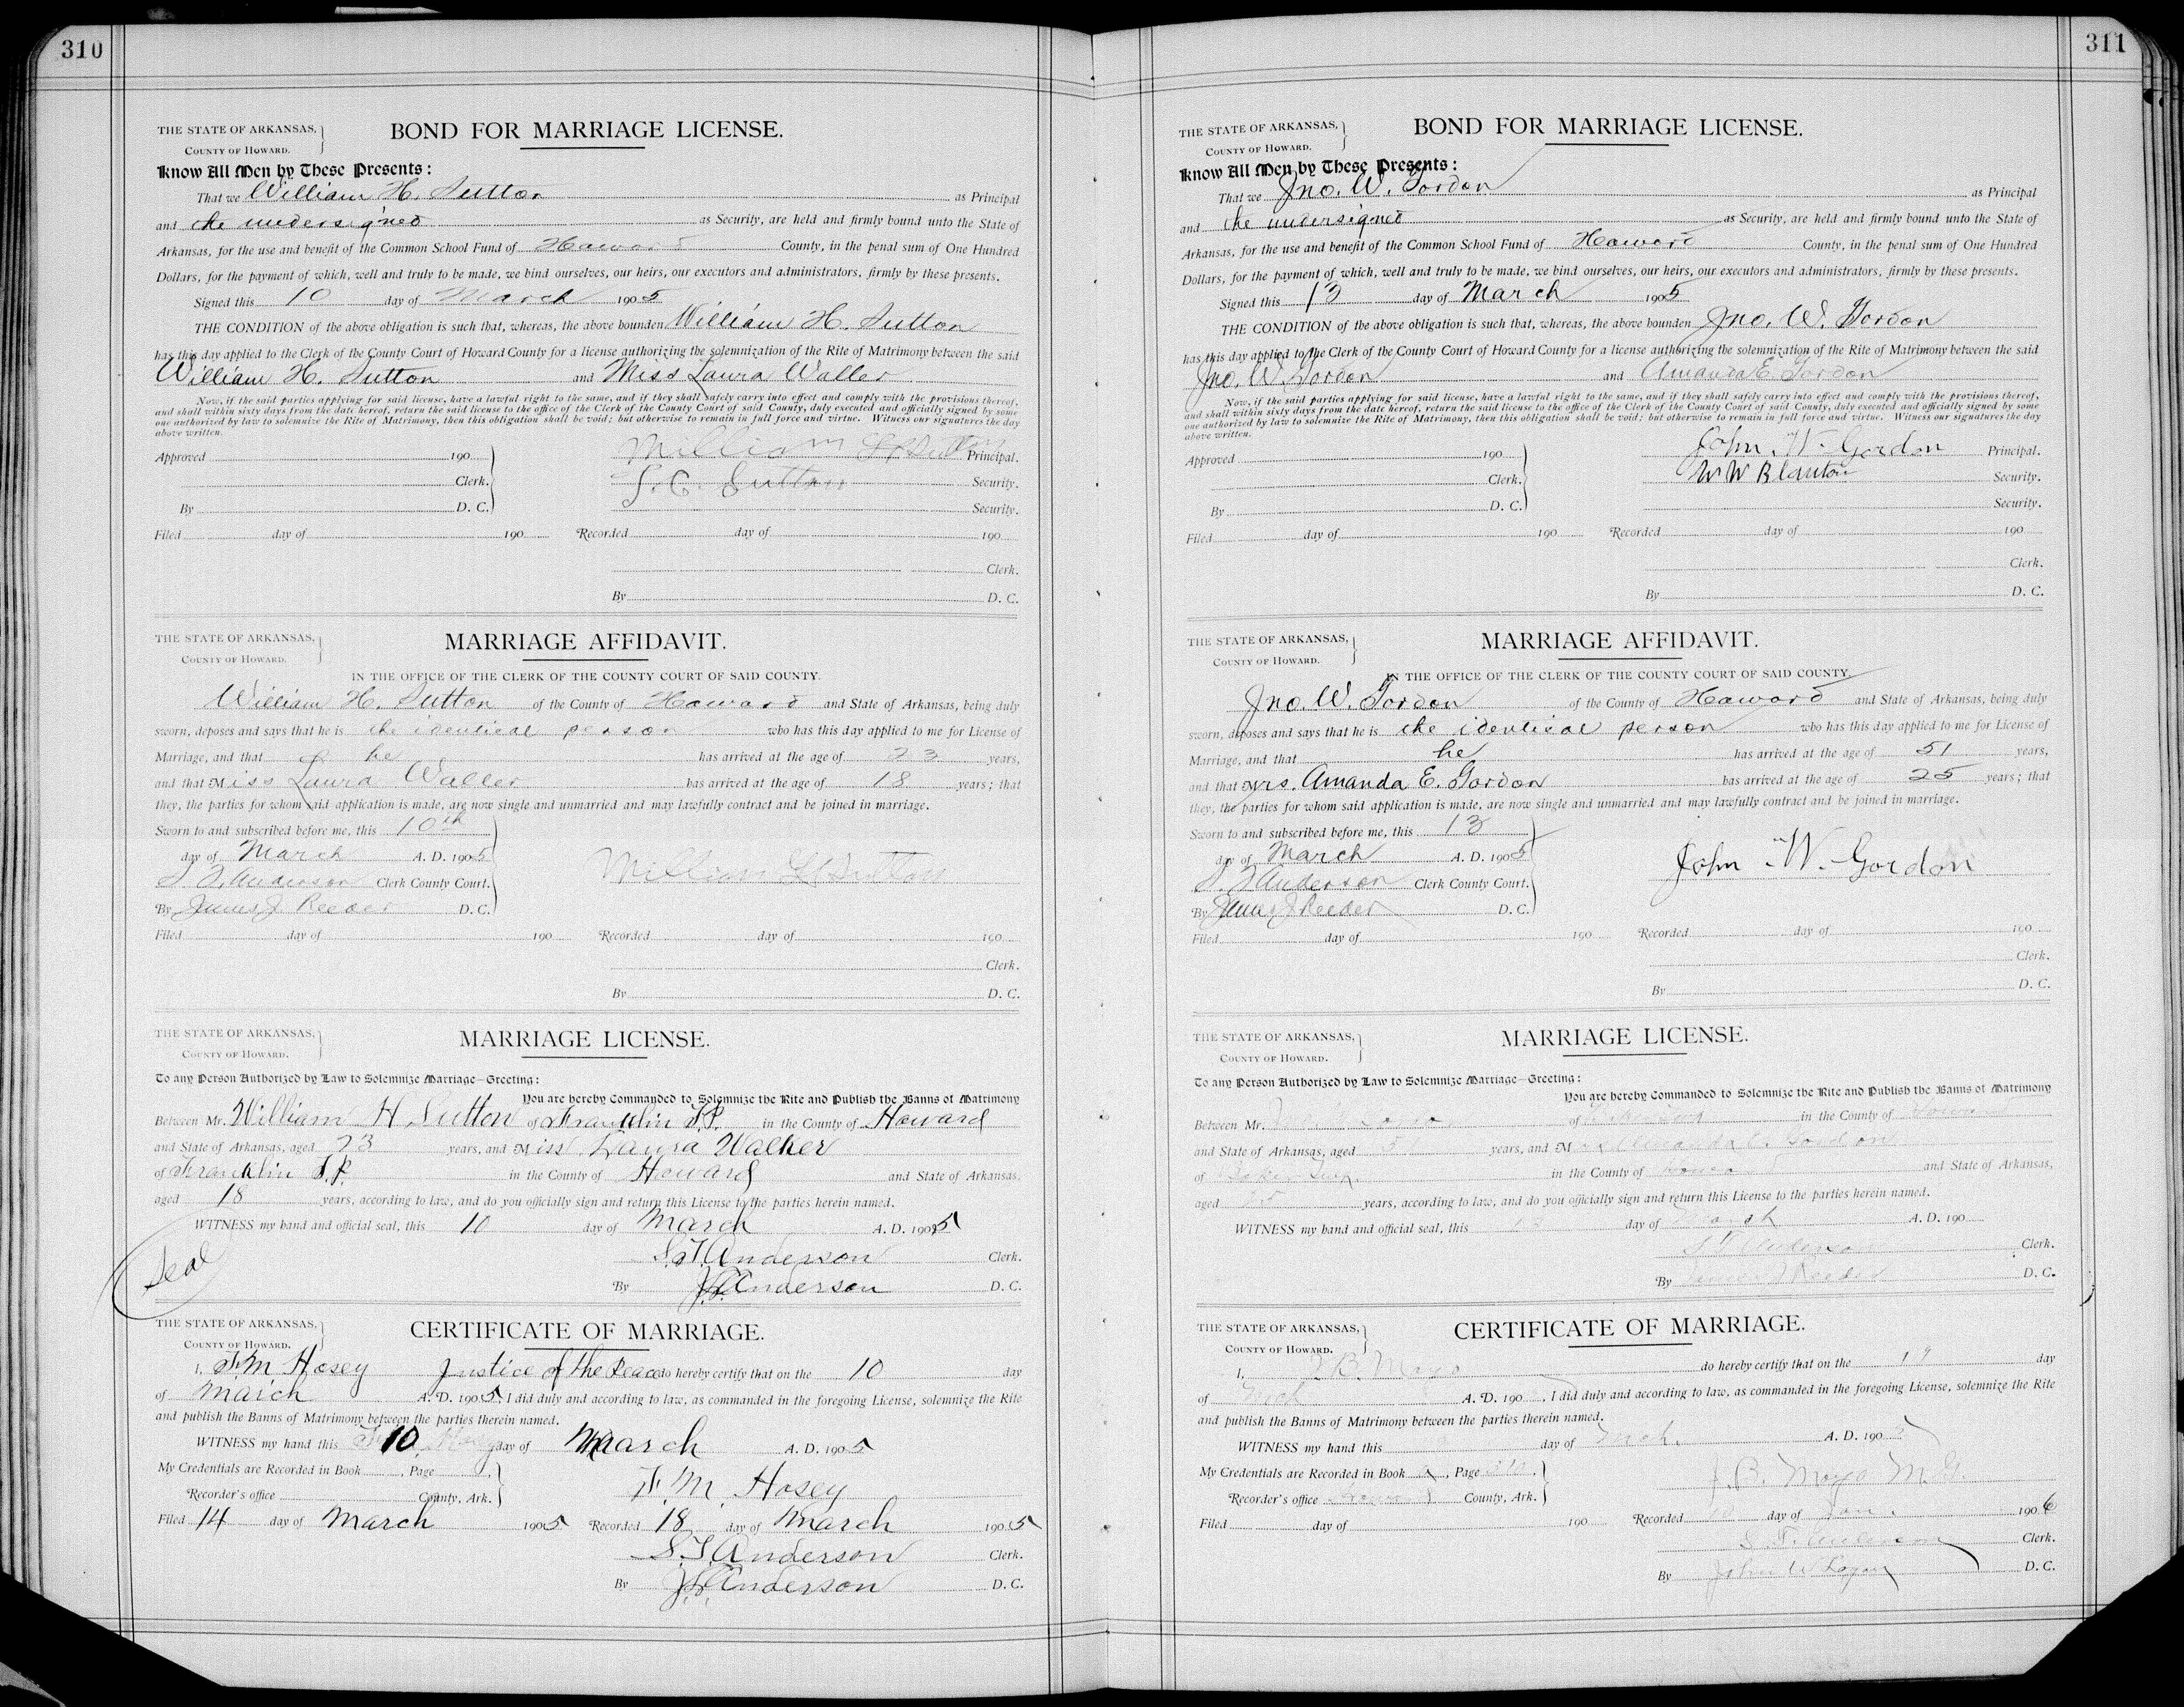 310
THE STATE OF ARKANSAS,
COUNTY OF HOWARD.
BOND FOR MARRIAGE LICENSE.
Know All Men by These Presents:
That we William H. Sutton as Principal
and the undersigned as Security, are held and firmly bound unto the State of
Arkansas, for the use and benefit of the Common School Fund of Howard County, in the penal sum of One Hundred
Dollars, for the payment of which, well and truly to be made, we bind ourselves, our heirs, our executors and administrators, firmly by these presents.
Signed this 10 day of March 1905
THE CONDITION of the above obligation is such that, whereas, the above bounden William H. Sutton
has this day applied to the Clerk of the County Court of Howard County for a license authorizing the solemnization of the Rite of Matrimony between the said
William H. Sutton and Miss Laura Waller
Now, if the said parties applying for said license, have a lawful right to the same, and if they shall safely carry into effect and comply with the provisions thereof,
and shall within sixty days from the date hereof, return the said license to the office of the Clerk of the County Court of said County, duly executed and officially signed by some
one authorized by law to solemnize the Rite of Matrimony, then this obligation shall be void; but otherwise to remain in full force and virtue. Witness our signatures the day
above written.
Approved 190 William H Sutton Principal.
Clerk. S. C. Sutton Security.
By D. C. Security.
Filed day of 190 Recorded day of 190
Clerk.
By D. C.
THE STATE OF ARKANSAS,
COUNTY OF HOWARD.
MARRIAGE AFFIDAVIT.
IN THE OFFICE OF THE CLERK OF THE COUNTY COURT OF SAID COUNTY.
William H. Sutton of the County of Howard and State of Arkansas, being duly
sworn, deposes and says that he is the identical person who has this day applied to me for License of
Marriage, and that he has arrived at the age of 23 years,
and that Miss Laura Waller has arrived at the age of 18 years; that
they, the parties for whom said application is made, are now single and unmarried and may lawfully contract and be joined in marriage.
Sworn to and subscribed before me, this 10th
day of March A. D. 1905
S. T. Anderson Clerk County Court. William H Sutton
By James J. Reeder D. C.
Filed day of 190 Recorded day of 190
Clerk.
By D. C.
THE STATE OF ARKANSAS,
COUNTY OF HOWARD.
MARRIAGE LICENSE.
To any Person Authorized by Law to Solemnize Marriage—Greeting:
You are hereby Commanded to Solemnize the Rite and Publish the Banns of Matrimony
Between Mr. William H Sutton of Franklin T.P. in the County of Howard
and State of Arkansas, aged 23 years, and Miss Laura Walker
of Franklin T.P. in the County of Howard and State of Arkansas,
aged 18 years, according to law, and do you officially sign and return this License to the parties herein named.
WITNESS my hand and official seal, this 10 day of March A. D. 1905
Seal
S. T. Anderson Clerk.
By Anderson D. C.
THE STATE OF ARKANSAS,
COUNTY OF HOWARD.
CERTIFICATE OF MARRIAGE.
I, F. M. Hosey Justice of the Peace do hereby certify that on the 10 day
of March A. D. 1905, I did duly and according to law, as commanded in the foregoing License, solemnize the Rite
and publish the Banns of Matrimony between the parties therein named.
WITNESS my hand this 10 day of March A. D. 1905
My Credentials are Recorded in Book , Page ,
F. M. Hosey
Recorder's office County, Ark.
Filed 14 day of March 1905 Recorded 18 day of March 1905
S. T. Anderson Clerk.
By Anderson D. C.
311
THE STATE OF ARKANSAS,
COUNTY OF HOWARD.
BOND FOR MARRIAGE LICENSE.
Know All Men by These Presents:
That we Jno. W. Gordon as Principal
and the undersigned as Security, are held and firmly bound unto the State of
Arkansas, for the use and benefit of the Common School Fund of Howard County, in the penal sum of One Hundred
Dollars, for the payment of which, well and truly to be made, we bind ourselves, our heirs, our executors and administrators, firmly by these presents.
Signed this 13 day of March 1905
THE CONDITION of the above obligation is such that, whereas, the above bounden Jno. W. Gordon
has this day applied to the Clerk of the County Court of Howard County for a license authorizing the solemnization of the Rite of Matrimony between the said
Jno. W. Gordon and Amanda E. Gordon
Now, if the said parties applying for said license, have a lawful right to the same, and if they shall safely carry into effect and comply with the provisions thereof,
and shall within sixty days from the date hereof, return the said license to the office of the Clerk of the County Court of said County, duly executed and officially signed by some
one authorized by law to solemnize the Rite of Matrimony, then this obligation shall be void; but otherwise to remain in full force and virtue. Witness our signatures the day
above written.
Approved 190 John W. Gordon Principal.
Clerk. W W Blanton Security.
By D. C. Security.
Filed day of 190 Recorded day of 190
Clerk.
By D. C.
THE STATE OF ARKANSAS,
COUNTY OF HOWARD.
MARRIAGE AFFIDAVIT.
IN THE OFFICE OF THE CLERK OF THE COUNTY COURT OF SAID COUNTY.
Jno. W. Gordon of the County of Howard and State of Arkansas, being duly
sworn, deposes and says that he is the identical person who has this day applied to me for License of
Marriage, and that he has arrived at the age of 51 years,
and that Mrs. Amanda E. Gordon has arrived at the age of 25 years; that
they, the parties for whom said application is made, are now single and unmarried and may lawfully contract and be joined in marriage.
Sworn to and subscribed before me, this 13
day of March A. D. 1905
John W. Gordon
S. T. Anderson Clerk County Court.
By James J Reeder D. C.
Filed day of 190 Recorded day of 190
Clerk.
By D. C.
THE STATE OF ARKANSAS,
COUNTY OF HOWARD.
MARRIAGE LICENSE.
To any Person Authorized by Law to Solemnize Marriage—Greeting:
You are hereby Commanded to Solemnize the Rite and Publish the Banns of Matrimony
Between Mr. of in the County of
and State of Arkansas, aged years, and Mrs Amanda E. Gordon
of in the County of Howard and State of Arkansas,
aged 25 years, according to law, and do you officially sign and return this License to the parties herein named.
WITNESS my hand and official seal, this 13 day of March A. D. 190
S. T. Anderson Clerk.
By James J Reeder D. C.
THE STATE OF ARKANSAS,
COUNTY OF HOWARD.
CERTIFICATE OF MARRIAGE.
I, J. B. Mays do hereby certify that on the 19 day
of Mch A. D. 190 , I did duly and according to law, as commanded in the foregoing License, solemnize the Rite
and publish the Banns of Matrimony between the parties therein named.
WITNESS my hand this day of Mch. A. D. 190
My Credentials are Recorded in Book , Page ,
J. B. Mays M. G.
Recorder's office Howard County, Ark.
Filed day of 190 Recorded day of Jan. 1906
S. T. Anderson Clerk.
By John W Logan D. C.